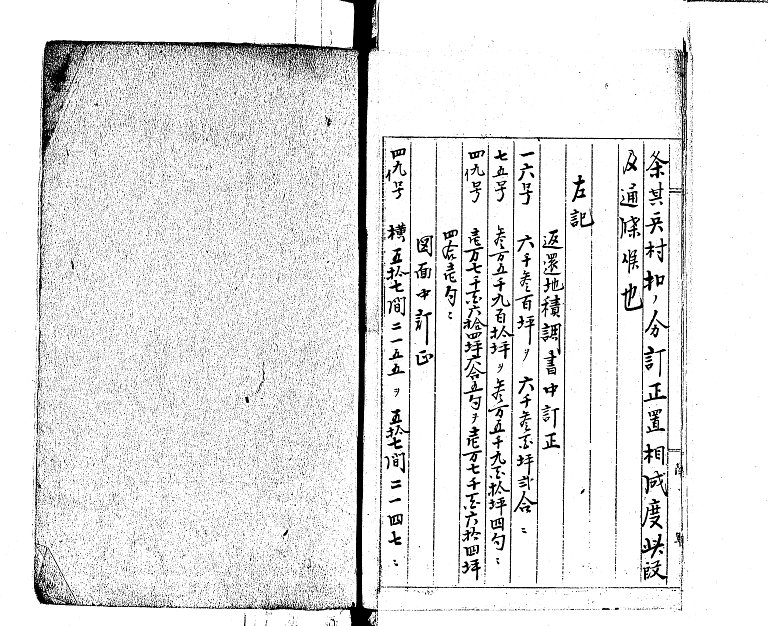 条其兵村扣ノ分訂正置相成度此段
及通牒候也
左記
返還地積調書中訂正
一六号 六千叁百坪ヲ 六千叁百坪弐合ニ
七五号 叁万五千九百拾坪ヲ叁万五千九百拾坪四勺ニ
四九号 壱万七千百六拾四坪六合五勺ヲ壱万七千百六拾四坪
四合壱勺ニ
図面中訂正
四九号 横五拾七間二一五五ヲ五拾七間二一四七ニ